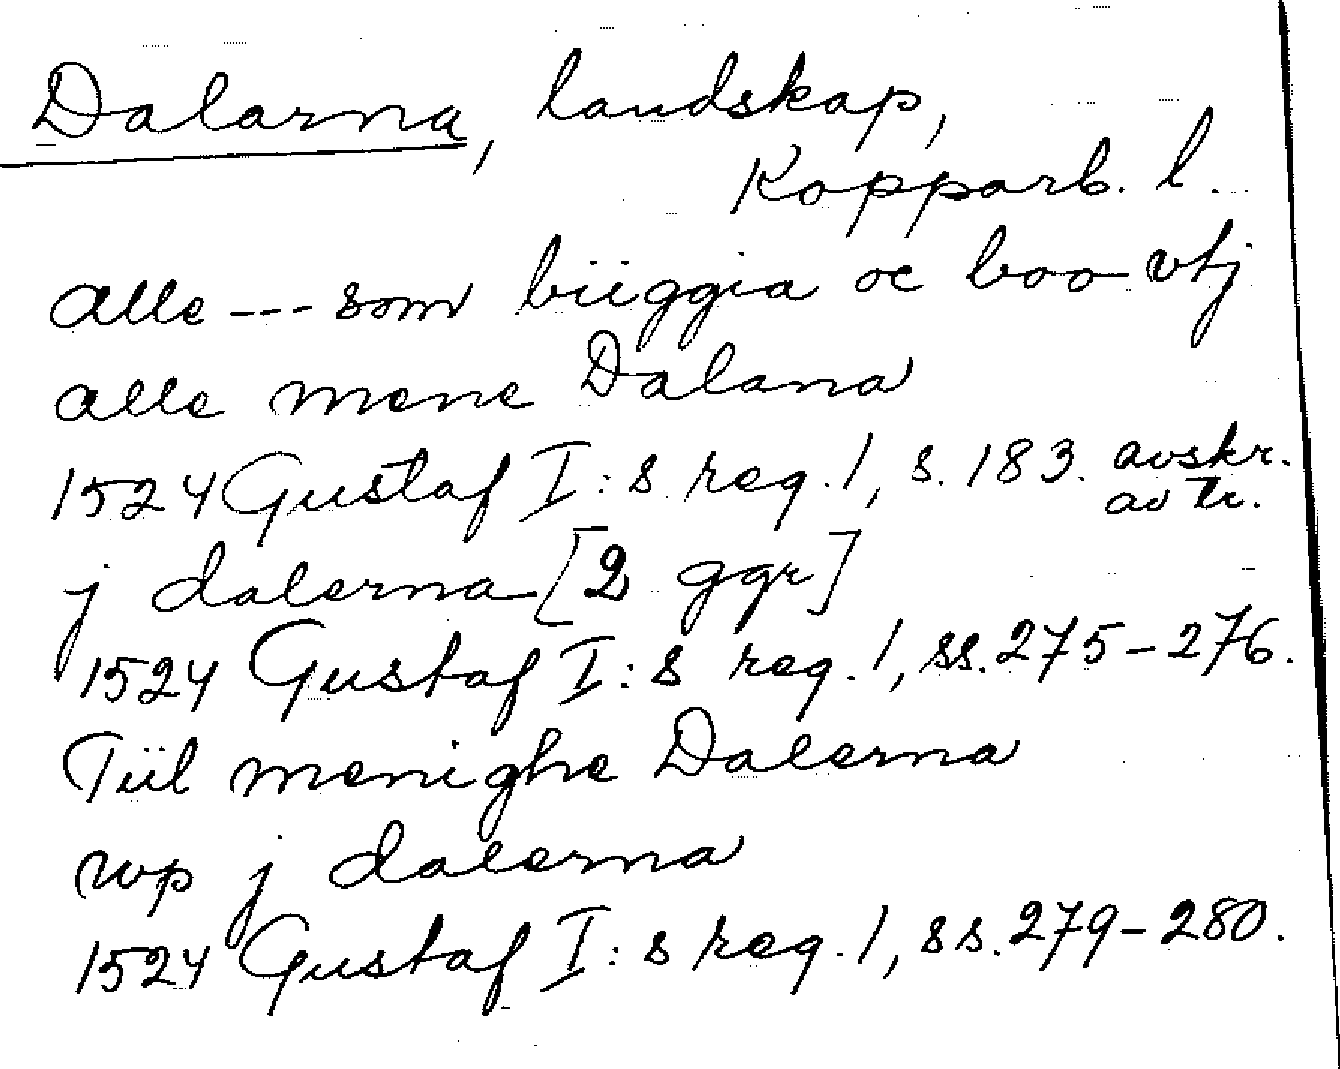 Dalarna, landskap,
Kopparb. l.
alle --- som biiggia oc boo vtj
alle mene Dalana
1524 Gustaf I:s reg. 1, s. 183. avskr.
av tr.
j dalerna [2 ggr]
1524 Gustaf I:s reg. 1, ss. 275-276.
Tiil menighe Dalerna
wp j dalerna
1524 Gustaf I:s reg. 1, ss. 279-280.